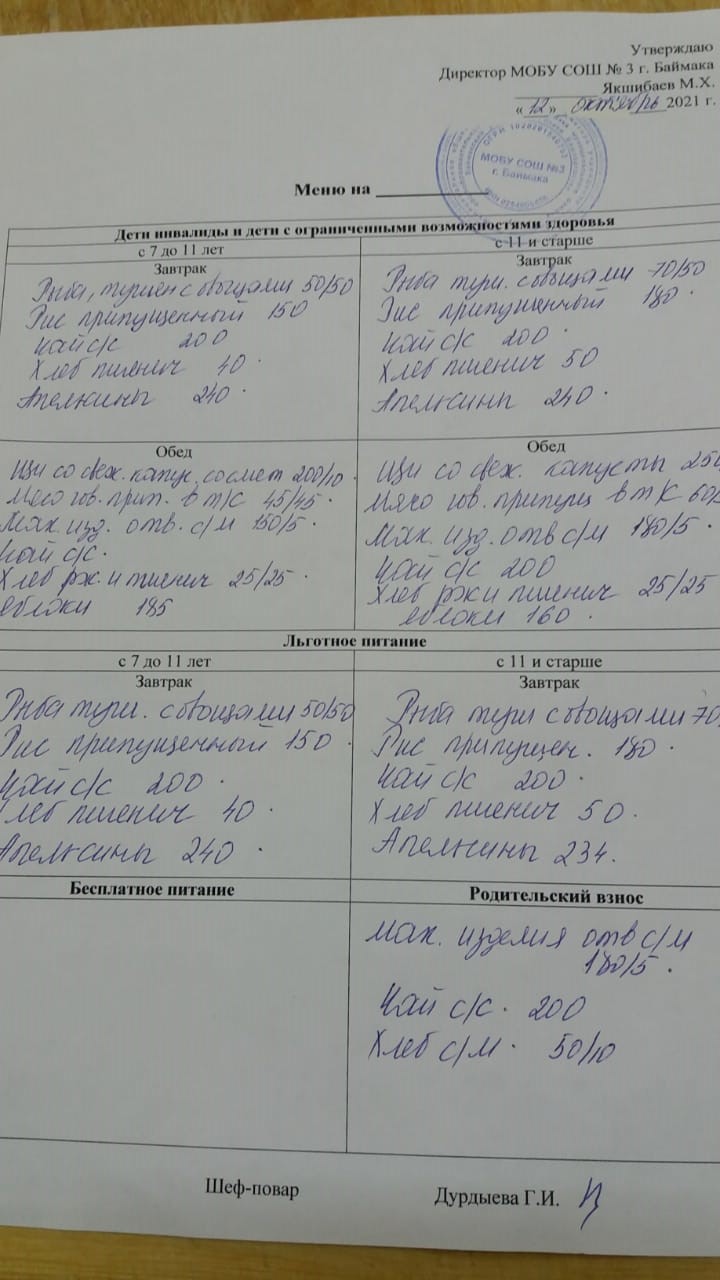 Утверждаю
Директор МОБУ СОШ № 3 г. Баймака
Якшибаев М.Х.
«12» октябрь 2021 г.
МОБУ СОШ №3
г. Баймака
Меню на
Дети инвалиды и дети с ограниченными возможностями здоровья
с 7 до 11 лет
Завтрак
Рыба, тушен с овощами 50/50
Рис припущенный 150
Чай с/с 200
Хлеб пшенич 40
Апельсины 240
с 11 и старше
Завтрак
Рыба туш. с овощами 70/50
Рис припущенный 180
Чай с/с 200
Хлеб пшенич 50
Апельсины 240
Обед
Щи со свеж. капус, со смет 200/10
Мясо гов. прип. в т/с 45/45
Мак. изд. отв. с/м 150/5
Чай с/с
Хлеб рж. и пшенич 25/25
Яблоки 185
Обед
Щи со свеж. капусты 250
Мясо гов. припущ в т/с 60/
Мак. изд. отв с/м 180/5
Чай с/с 200
Хлеб рж и пшенич 25/25
Яблоки 160
Льготное питание
с 7 до 11 лет
Завтрак
Рыба туш. с овощами 50/50
Рис припущенный 150
Чай с/с 200
Хлеб пшенич 40
Апельсины 240
с 11 и старше
Завтрак
Рыба туш с овощами 70/
Рис припущен. 180
Чай с/с 200
Хлеб пшенич 50
Апельсины 234.
Бесплатное питание
Родительский взнос
Мак. изделия отв с/м
180/5
Чай с/с 200
Хлеб с/м 50/10
Шеф-повар Дурдыева Г.И.